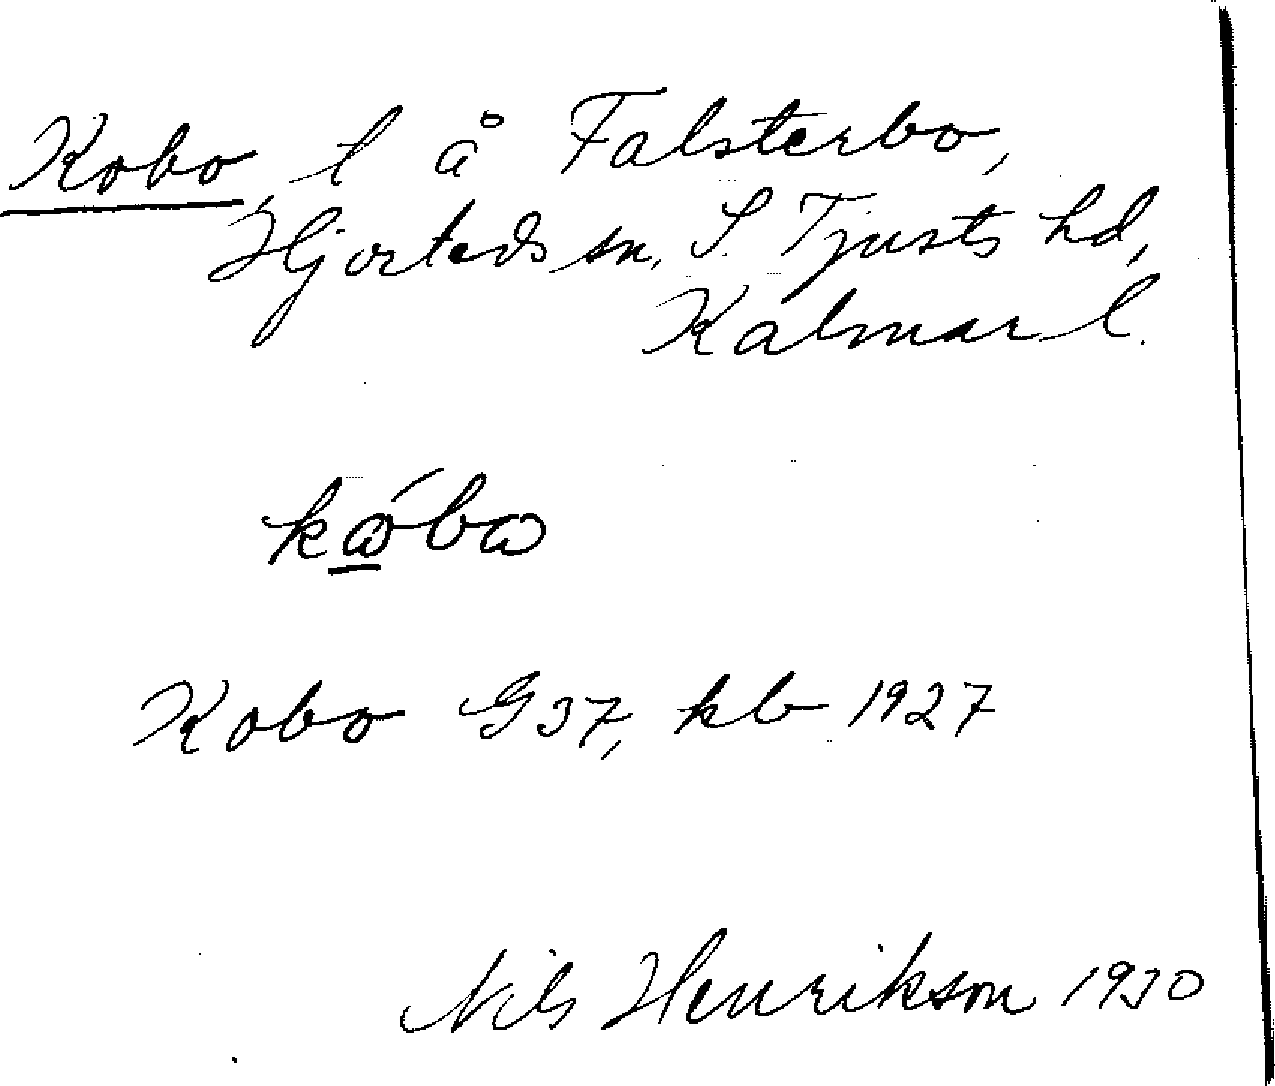 Kobo l å Falsterbo,
Hjorteds sn, S. Tjusts hd,
Kalmar l.
kώ̱bω
Kobo G37, kb 1927
Nils Henrikson 1930